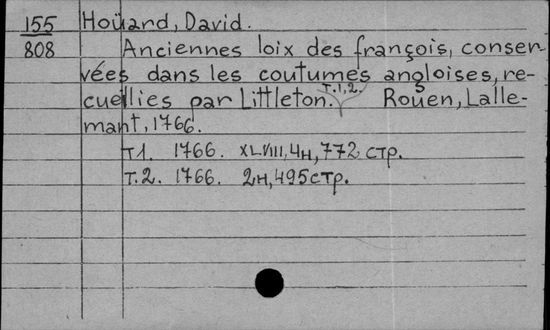 155 Hoüard, David.
808 Anciennes loix des françois, conser-
vées dans les coutumes angloises, re-
cueillies par Littleton. T.1,2. Rouen, Lalle-
mant, 1766.
T1. 1766. XLVIII, 4н, 772 стр.
T.2. 1766. 2н, 495 стр.